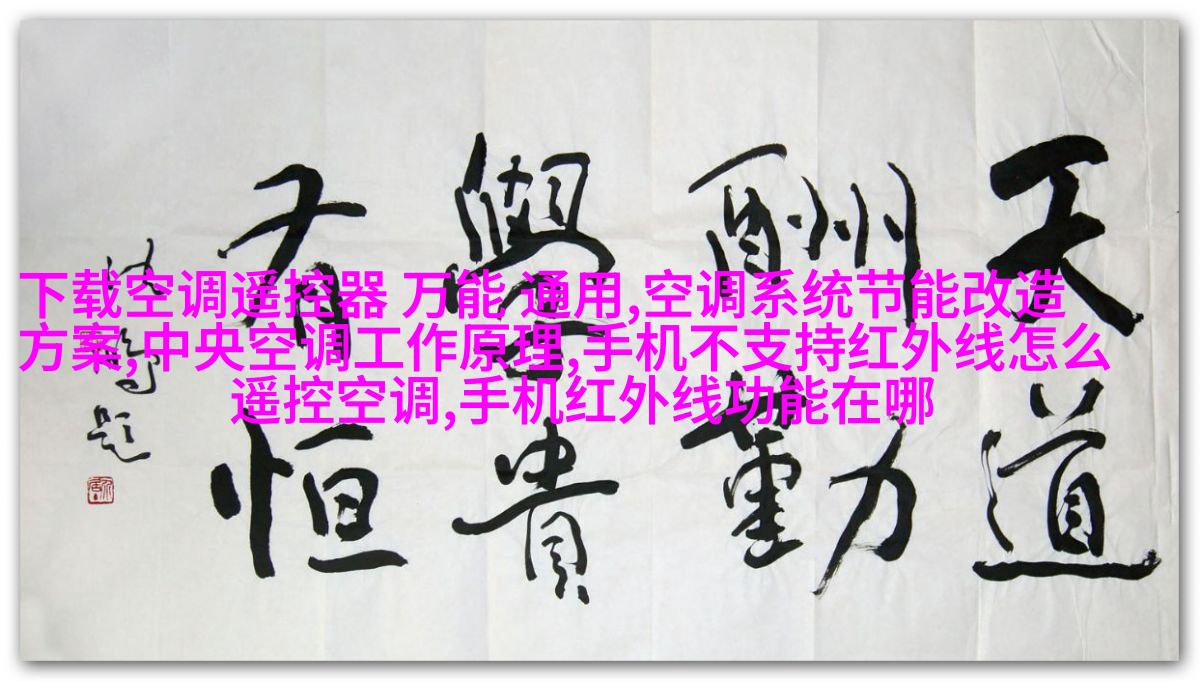 下载空调遥控器 万能 通用,空调系统节能改造
方案,中央空调工作原理,手机不支持红外线怎么
遥控空调,手机红外线功能在哪
天道
酬勤
學貴
有恒
题